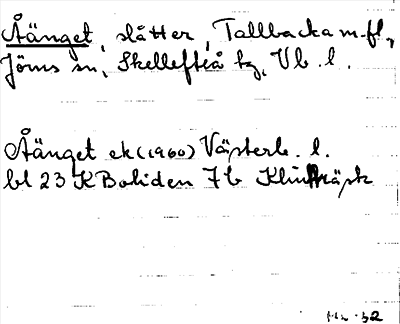 Åänget, slåtter, Tallbacka m.fl.,
Jörns sn, Skellefteå kg, Vb. l.
Åänget ek (1960) Västerb. l.
bl 23 K Boliden 7b Klintträsk